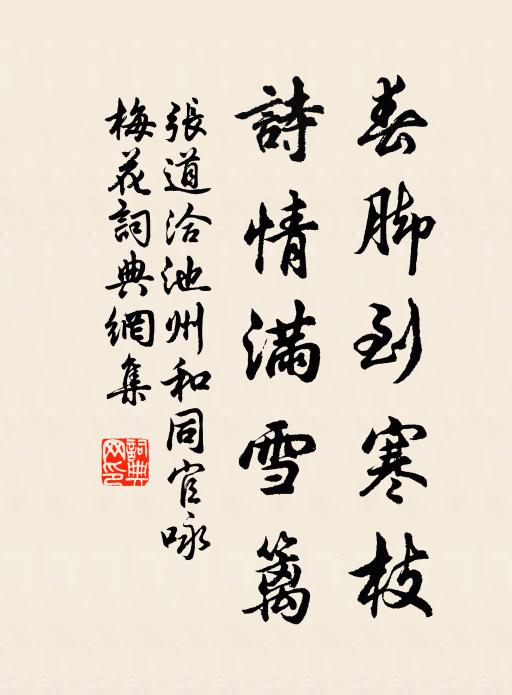 春脚到寒枝
詩情滿雪籬
張道洽池州和同官咏
梅花詞典網集
詞典
网印